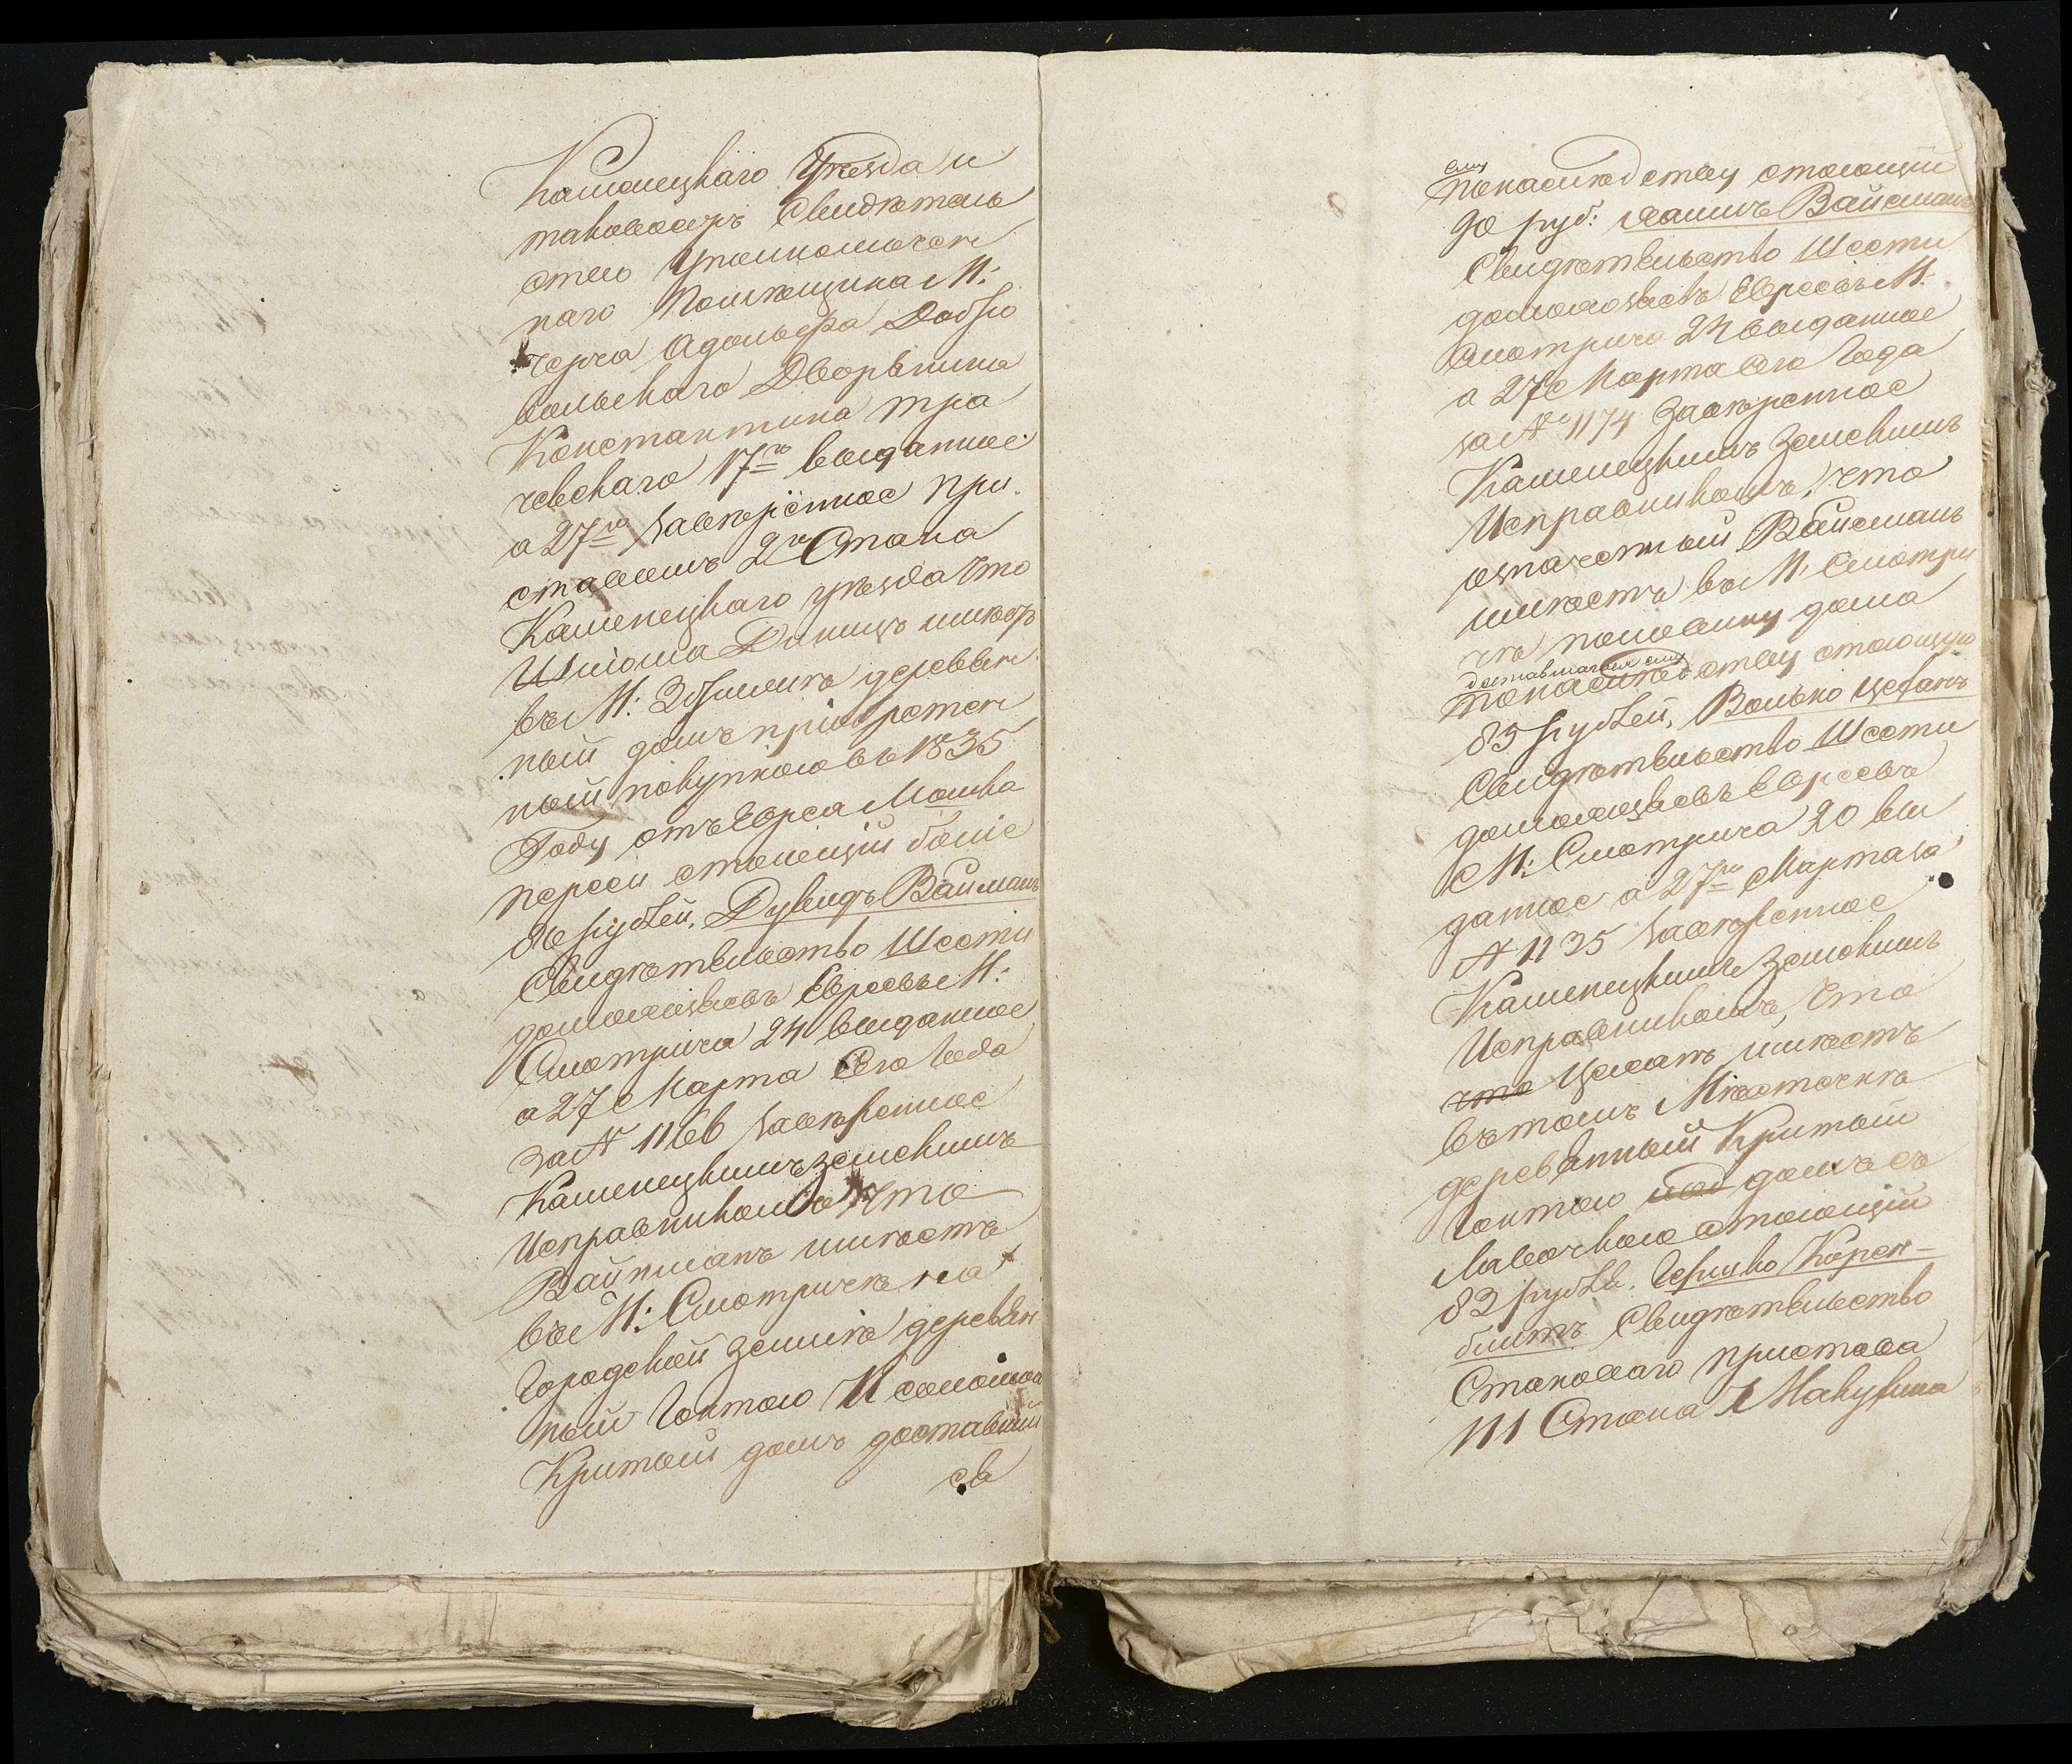 Каменецкаго Уѣзда и
таковоежъ Свидѣтель
ство Уполномочен
наго Помѣщика М:
Адольфа Добро
вольскаго Дворянина
Константина Тра
чевскаго 17го выданное
а 27го завѣренное При
ставомъ 2го Стана
Каменецкаго уѣзда что
Диницъ имѣетъ
въ М: деревян
ный домъ пріобретен
ный покупкою въ 1835
Году отъ Еврея Мошка
стоющій болѣе
80 рублей, Дувидъ Вайманъ
Свидѣтельство Шести
домохозяевъ Евреевъ М:
Смотрича 24 выданное
а 27 Марта сего Года
за № 1166 завѣренное
Каменецкимъ земскимъ
Исправникомъ что
Вайнманъ имѣетъ
въ М: Смотричѣ на
Городской землѣ деревян
ный Гонтою И соломою
Критый домъ доставший
ся
ему
по наследству стоющій
90 руб: Хаимъ Вайсманъ
Свидѣтельство Шести
домохозяевъ Евреевъ М:
Смотрича 24 выданное
а 27 Марта сего Года
за № 1174 Завѣренное
Каменецкимъ Земскимъ
Исправникомъ, что
означенный Вайсманъ
имѣетъ въ М: Смотри
чѣ половину дома
доставшагося ему
по наследству стоющую
85 рублей, Волько Цефанъ
Свидѣтельство Шести
домохозяевъ Евреевъ
М: Смотрича 20 вы
данное а 27го Марта за
№ 1135 завѣренное
Каменецкимъ Земскимъ
Исправникомъ, что
что имѣетъ
въ томъ Мѣстечкѣ
деревянный Критый
Гонтою домъ съ
Лавочкою стоющій
83 рубля. Гершко Корен-
блитъ Свидѣтельство
Становаго пристава
III Стана